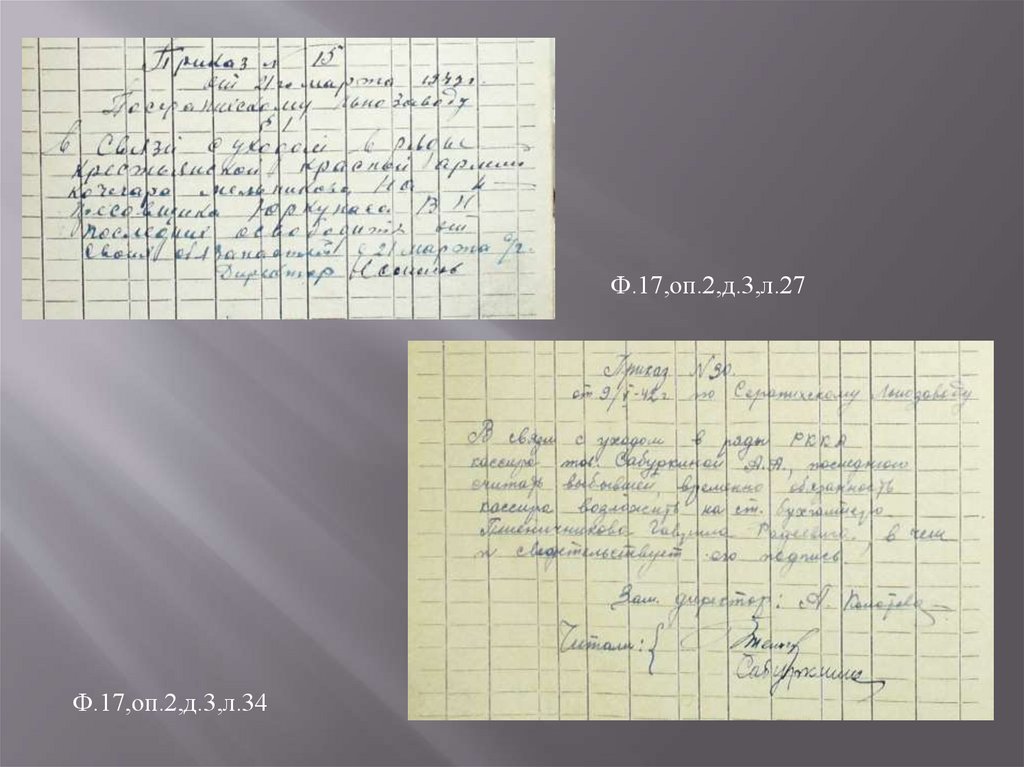 Приказ № 15
от 21го марта 1942г.
По Серапихскому Льнозаводу
§ 1
В связи с уходом в ряды
крестьянской красной армии
кочегара Мельникова и
весовщика Юркунаса В Н
последних освободить от
своих обязаностей с 21 марта с/г.
Директор
Ф.17,оп.2,д.3,л.27
Приказ N 30.
от 9/V-42г по Серапихскому Льнозаводу
В связи с уходом в ряды РККА
кассира тов. Сабуркиной А.А., последнюю
считать выбывшей, временно обязанность
кассира возложить на ст. бухгалтера
Пшеничникова Гаврила Фадеевича, в чем
и свидетельствует его подпись
Зам. директор: А. Колотова
Читали:
Сабуркина
Ф.17,оп.2,д.3,л.34